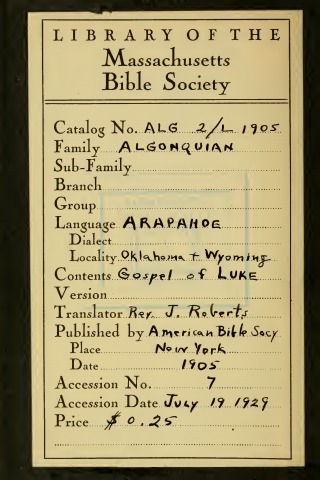 LIBRARY OF THE
Massachusetts
Bible Society
Catalog No. ALG 2/L 1905
Family ALGONQUIAN
Sub-Family
Branch
Group
Language ARAPAHOE
Dialect
Locality Oklahoma + Wyoming
Contents Gospel of LUKE
Version
Translator Rev. J. Roberts
Published by American Bible Socy
Place New York
Date 1905
Accession No. 7
Accession Date JULY 19 1929
Price $0.25